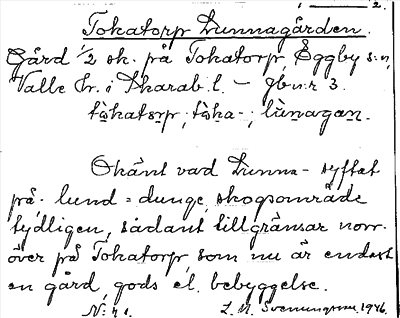 2.
Tokatorp Lunnagården.
Gård 1/2 sk. på Tokatorp, Eggby s:n,
Valle hr. i Skarab. l. – Jbnr 3.
tòkatɔrp, tòka-; lùnagan.
Okänt vad Lunna- syftat
på. lund = dunge, skogsområde
tydligen, sådant tillgränsar norr-
över på Tokatorp, som nu är endast
en gård, gods el. bebyggelse.
L. M. Svenungsson, 1946.